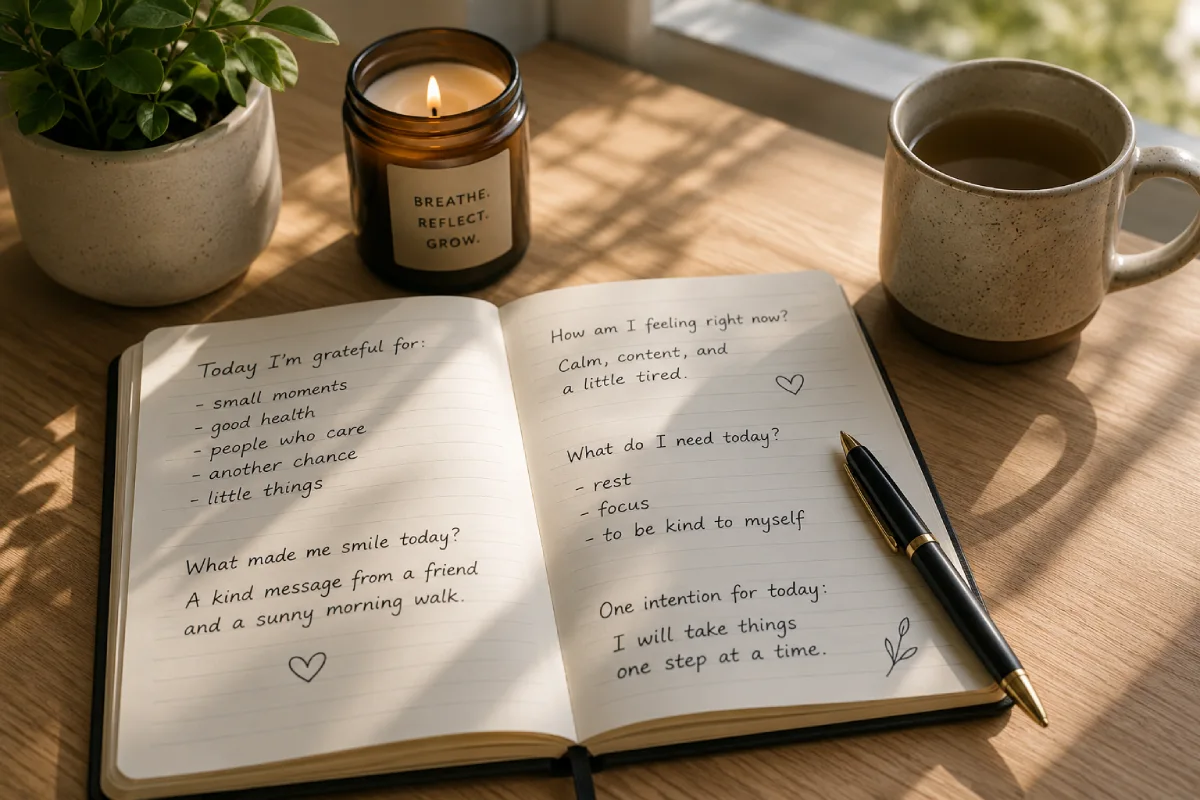 BREATHE.
REFLECT.
GROW.
Today I'm grateful for:
- small moments
- good health
- people who care
- another chance
- little things
What made me smile today?
A kind message from a friend
and a sunny morning walk.
How am I feeling right now?
Calm, content, and
a little tired.
What do I need today?
- rest
- focus
- to be kind to myself
One intention for today:
I will take things
one step at a time.